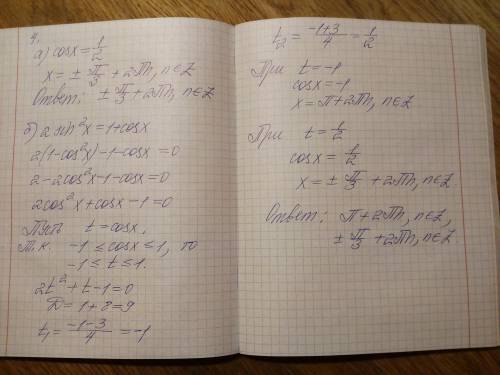 4.
а) cosx = 1/2
x = ± π/3 + 2πn, n∈Z
Ответ: ± π/3 + 2πn, n∈Z
б) 2 sin²x = 1 + cosx
2(1-cos²x) - 1 - cosx = 0
2 - 2cos²x - 1 - cosx = 0
2cos²x + cosx - 1 = 0
Пусть t = cosx,
т.к. -1 ≤ cosx ≤ 1, то
-1 ≤ t ≤ 1.
2t² + t - 1 = 0
D = 1 + 8 = 9
t₁ = (-1-3)/4 = -1
t₂ = (-1+3)/4 = 1/2
При t = -1
cosx = -1
x = π + 2πn, n∈Z
При t = 1/2
cosx = 1/2
x = ± π/3 + 2πn, n∈Z.
Ответ: π + 2πn, n∈Z,
± π/3 + 2πn, n∈Z.